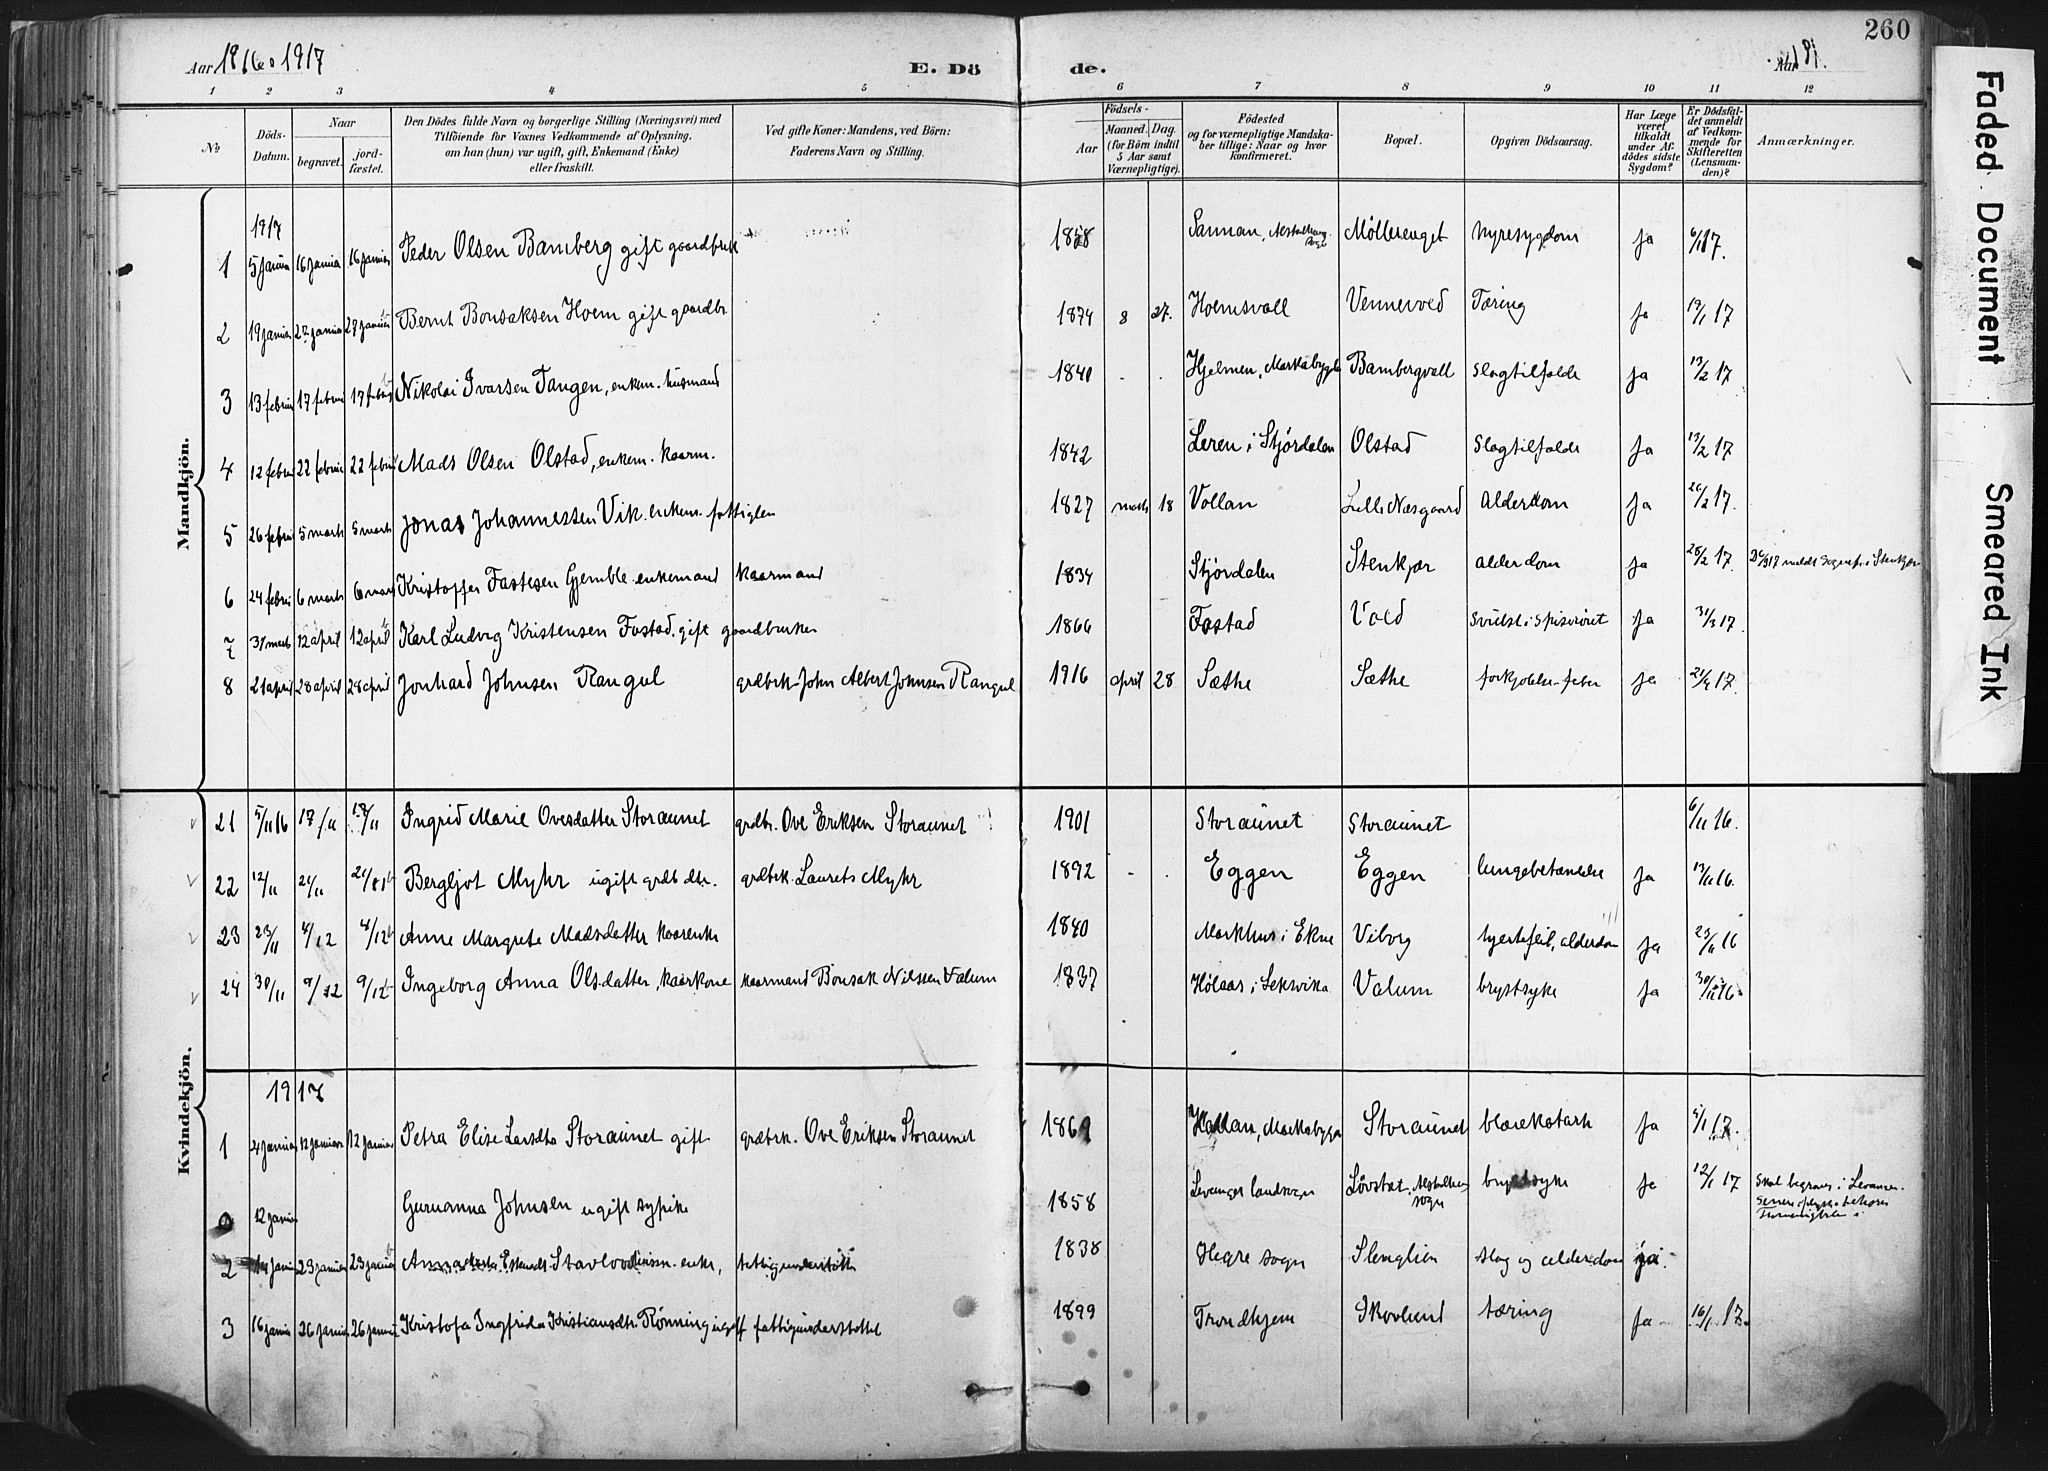 260
Aar 1916 o 1917 E. Döde. Aar 191 .
1 2 3 4 5 6 7 8 9 10 11 12
No
Döds-Datum.
Naar
begravet.
jord-fæstet.
Den Dödes fulde Navn og borgerlige Stilling (Næringsvei) med
Tilföiende for Voxnes Vedkommende af Oplysning,
om han (hun) var ugift, gift, Enkemand (Enke)
eller fraskilt.
Ved gifte Koner: Mandens, ved Börn:
Faderens Navn og Stilling.
Födsels-
Aar
Maaned. Dag.
(for Börn indtil
5 Aar samt
Værnepligtige).
Födested
og for værnepligtige Mandska-
ber tillige: Naar og hvor
konfirmeret.
Bopæl.
Opgiven Dödsaarsag.
Har Læge
været
tilkaldt
under Af-
dödes sidste
Sygdom?
Er Dödsfal-
det anmeldt
af Vedkom-
mende for
Skifteretten
(Lensman-
den)?
Anmærkninger.
Faded Document
Smeared Ink
Mandkjön.
1917
1 5 januar 16 januar 16 januar Peder Olsen Bamberg gift gaardbruk 1858 Sannan, Alstadhaug sogn Möllerenget nyresygdom ja 6/1 17.
2 19 januar 27 januar 27 januar Bernt Bonsaksen Hoem gift gaardbr. 1874 8 27. Hoemsvall Vennevold Tæring ja 19/1 17
3 13 februar 17 februar 17 februar Nikolai Ivarsen Tangen, enkem. husmand 1840 . . Hjelmen, Markabygda Bambergvall Slagtilfælde ja 13/2 17
4 12 februar 22 februar 22 februar Mads Olsen Olstad, enkem. kaarm. 1842 Leren i Stjördalen Olstad Slagtilfælde ja 13/2 17
5 26 februar 5 marts 5 marts Jonas Johannessen Vik. enkem. fattiglem 1827 marts 18 Vollan Lille Næsgaard Alderdom ja 26/2 17.
6 24 februar 6 marts 6 marts Kristoffer Fastesen Gjemble. enkemand kaarmand 1834 Stjördalen Stenkjær alderdom ja 28/2 17.
7 31 marts 12 april 12 april Karl Ludvig Kristensen Fostad. gift gaardbruker 1866 Fostad Vold Svulst i Spiserøret ja 31/3 17.
8 21 april 28 april 28 april Jonhard Johnsen Rangul grdbrk. John Albert Johnsen Rangul 1916 april 28 Sæthe Sæthe forkjølelse-feber ja 21/4 17.
Kvindekjön.
21 5/11 16 17/11 17/11 Ingrid Marie Ovesdatter Storaunet grdbr. Ove Eriksen Storaunet 1901 Storaunet Storaunet 6/11 16.
22 12/11 24/11 24/11 Bergljot Myhr ugift grdb. dtr. grdbrk. Laurets Myhr 1892 - . Eggen Eggen lungebetændelse ja 13/11 16.
23 23/11 4/12 4/12 Anne Margrete Madsdatter kaarenke 1840 Markhus i Ekne Viborg hjertefeil, alderdom ja 23/11 16
24 30/11 9/12 9/12 Ingeborg Anna Olsdatter, kaarkone kaarmand Bonsak Nilssen Valum 1837 Hølaas i Leksvika Valum brystsyke ja 30/11 16
1917
1 4 januar 12 januar 12 januar Petra Elise Larsdtr Storaunet gift grdbrk. Ove Eriksen Storaunet 1869 Hallan, Markabygda Storaunet blærekatarh ja 5/1 17.
12 januar Guruanna Johnsen ugift sypike 1858 Levanger landsogn Lövstat, Alstadhaug sogn brystsyke ja 12/1 17 Skal begraves i Levanger.
2 14 januar 23 januar 23 januar Anna enke, fattigunderstött 1838 Hegre sogn Slenglien Slag og alderdom ja.
3 16 januar 26 januar 26 januar Kristofa Ingfrida Kristiansdtr. Rønning ugift fattigunderstøttet 1899 Trondhjem Skovlund tæring ja 16/1 17.